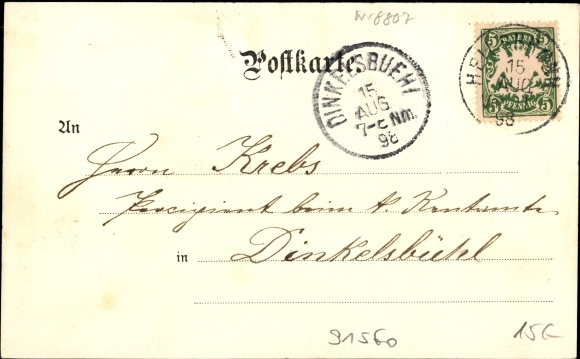 Nr 8807
Postkarte.
DINKELSBUEHL
15
AUG
7-8 Nm.
98
15
AUG
98
5 BAYERN 5
5 PFENNIG 5
An
Herrn Krebs
beim k. Rentamte
in Dinkelsbühl
91560
15€